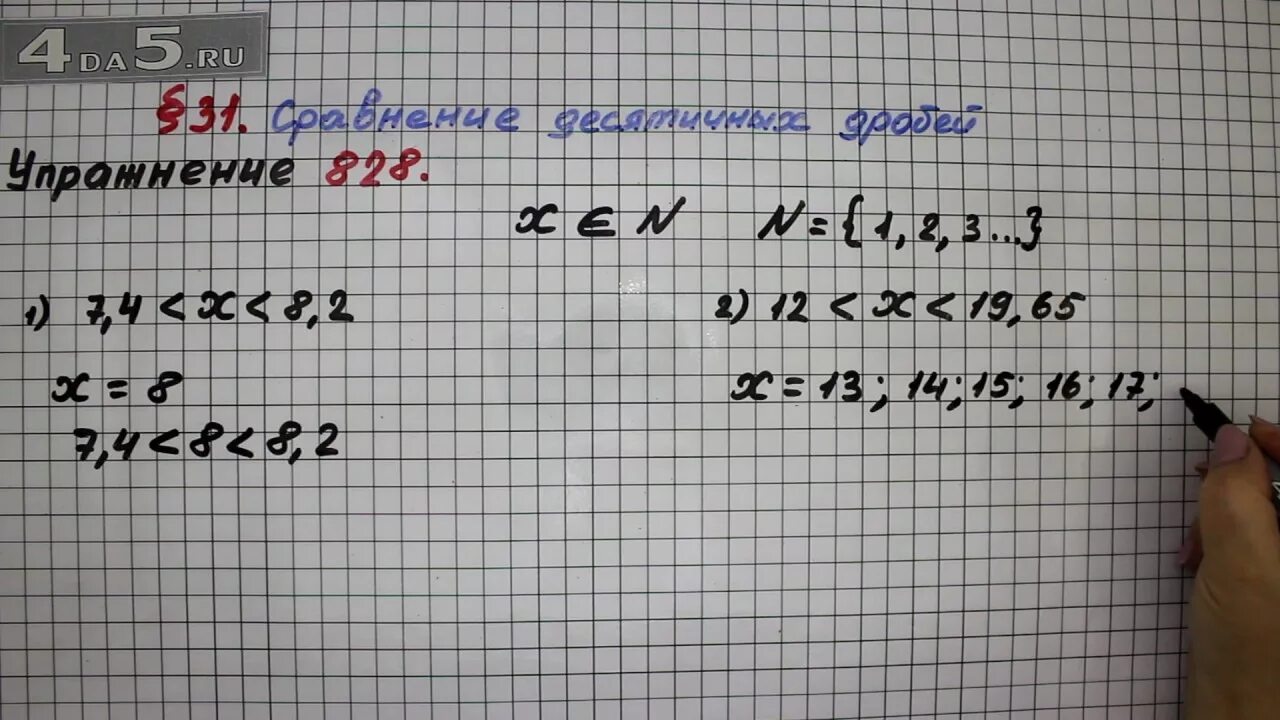 4DA5.RU
§31. Сравнение десятичных дробей
Упражнение 828.
x ∈ N N = {1, 2, 3...}
1) 7,4 < x < 8,2
x = 8
7,4 < 8 < 8,2
2) 12 < x < 19,65
x = 13; 14; 15; 16; 17;